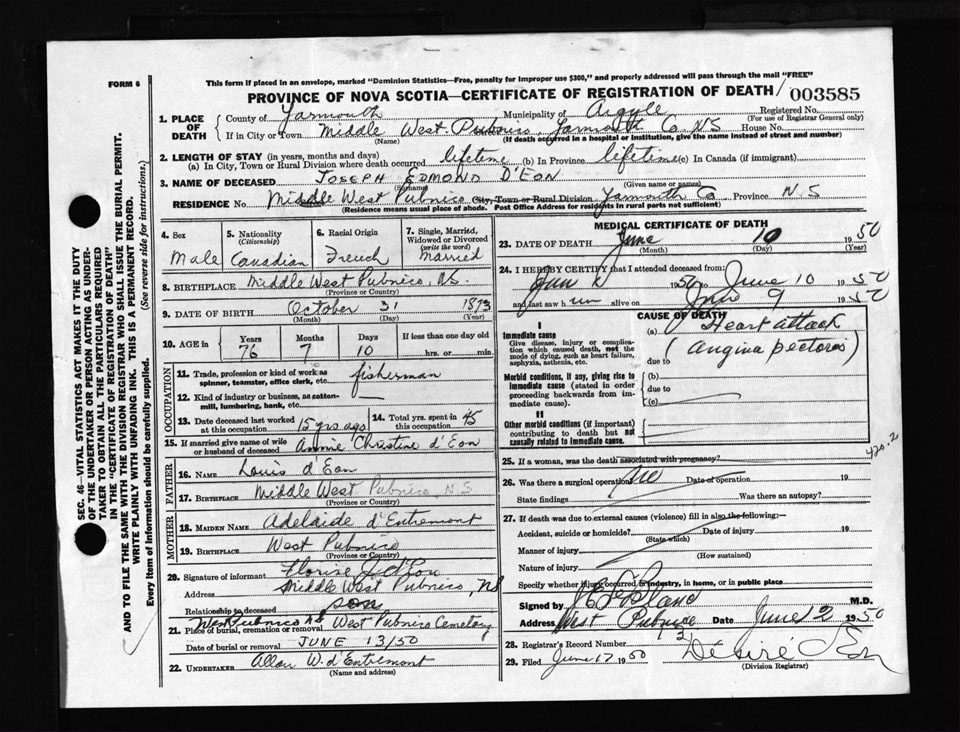 FORM 6
This form if placed in an envelope, marked "Dominion Statistics—Free, penalty for improper use $300," and properly addressed will pass through the mail "FREE"
PROVINCE OF NOVA SCOTIA—CERTIFICATE OF REGISTRATION OF DEATH
003585
1. PLACE OF DEATH { County of Yarmouth Municipality of Argyle Registered No.
(For use of Registrar General only)
If in City or Town Middle West Pubnico, Yarmouth Co. NS House No.
(Name) (If death occurred in a hospital or institution, give the name instead of street and number)
2. LENGTH OF STAY (in years, months and days)
(a) In City, Town or Rural Division where death occurred lifetime (b) In Province lifetime (c) In Canada (if immigrant)
3. NAME OF DECEASED JOSEPH EDMOND D'EON
(Surname) (Given name or names)
RESIDENCE No. Middle West Pubnico City, Town or Rural Division Yarmouth Co Province N.S
(Residence means usual place of abode. Post Office Address for residents in rural parts not sufficient)
4. Sex Male
5. Nationality (Citizenship) Canadian
6. Racial Origin French
7. Single, Married, Widowed or Divorced (write the word) Married
8. BIRTHPLACE Middle West Pubnico, NS.
(Province or Country)
9. DATE OF BIRTH October 31 1873
(Month) (Day) (Year)
10. AGE in { Years 76 Months 7 Days 10 If less than one day old hrs. or min.
OCCUPATION
11. Trade, profession or kind of work as spinner, teamster, office clerk, etc. fisherman
12. Kind of industry or business, as cotton-mill, lumbering, bank, etc.
13. Date deceased last worked at this occupation 15 yrs ago
14. Total yrs. spent in this occupation 45
15. If married give name of wife or husband of deceased Annie Christine d'Eon
FATHER
16. NAME Louis d'Eon
17. BIRTHPLACE Middle West Pubnico, N.S
(Province or Country)
MOTHER
18. MAIDEN NAME Adelaide d'Entremont
19. BIRTHPLACE West Pubnico
(Province or Country)
20. Signature of informant d'Eon
Address Middle West Pubnico, NS
Relationship to deceased son
West Pubnico NS
21. Place of burial, cremation or removal West Pubnico Cemetery
Date of burial or removal JUNE 13/50
22. UNDERTAKER Allan W. d'Entremont
(Name and address)
MEDICAL CERTIFICATE OF DEATH
23. DATE OF DEATH June 10 1950
(Month) (Day) (Year)
24. I HEREBY CERTIFY that I attended deceased from:
1950 to June 10 1950
and last saw h im alive on June 9 1950
CAUSE OF DEATH
I
Immediate cause
Give disease, injury or complication which caused death, not the mode of dying, such as heart failure, asphyxia, asthenia, etc.
(a) Heart attack
(Angina pectoris)
due to
Morbid conditions, if any, giving rise to immediate cause (stated in order proceeding backwards from immediate cause).
(b)
due to
(c)
II
Other morbid conditions (if important) contributing to death but not causally related to immediate cause.
420.2
25. If a woman, was the death associated with pregnancy?
26. Was there a surgical operation? no Date of operation 19
State findings Was there an autopsy?
27. If death was due to external causes (violence) fill in also the following:
Accident, suicide or homicide? Date of injury 19
(State which)
Manner of injury
(How sustained)
Nature of injury
Specify whether injury occurred in industry, in home, or in public place
Signed by M.D.
Address West Pubnico Date June 12 1950
28. Registrar's Record Number
29. Filed June 17 1950 Désiré d'Eon
(Division Registrar)
SEC. 46—VITAL STATISTICS ACT MAKES IT THE DUTY
OF THE UNDERTAKER OR PERSON ACTING AS UNDERTAKER
TO OBTAIN ALL THE PARTICULARS REQUIRED
IN THE "CERTIFICATE OF REGISTRATION OF DEATH"
AND TO FILE THE SAME WITH THE DIVISION REGISTRAR WHO SHALL ISSUE THE BURIAL PERMIT.
WRITE PLAINLY WITH UNFADING INK. THIS IS A PERMANENT RECORD.
Every item of information should be carefully supplied. (See reverse side for instructions.)